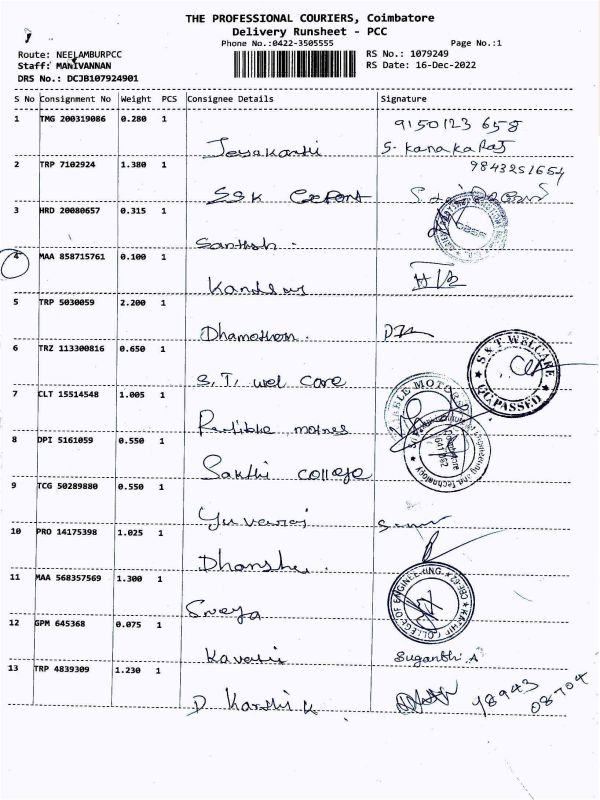 THE PROFESSIONAL COURIERS, Coimbatore
Delivery Runsheet - PCC
Phone No.:0422-3505555 Page No.:1
Route: NEELAMBURPCC RS No.: 1079249
Staff: MANIVANNAN RS Date: 16-Dec-2022
DRS No.: DCJB107924901
S No Consignment No Weight PCS Consignee Details Signature
1 TMG 200319086 0.280 1
9150123 658
Jeyakanthi S. kanakaraj
2 TRP 7102924 1.380 1 9843251654
SSK Export
3 HRD 20080657 0.315 1
Santhosh
4 MAA 858715761 0.100 1
5 TRP 5030059 2.200 1
Dhamotharan.
6 TRZ 113300816 0.650 1
S & T. WELCARE
Q.C. PASSED
S.T. wel care
7 CLT 15514548 1.005 1
MOTORS
8 DPI 5161059 0.550 1
Sakthi college
9 TCG 50289880 0.550 1
Yuvaraj
10 PRO 14175398 1.025 1
11 MAA 568357569 1.300 1
COLLEGE OF ENGINEERING
Sreya
12 GPM 645368 0.075 1
Suganthi. A
13 TRP 4839309 1.230 1
D. Karthik 98943
08704